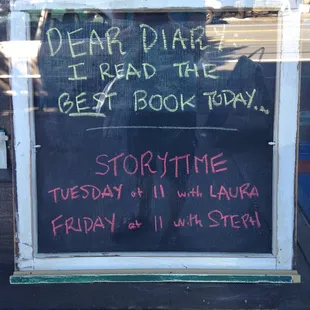 DEAR DIARY:
I READ THE
BEST BOOK TODAY...
STORYTIME
TUESDAY at 11 with LAURA
FRIDAY at 11 with STEPH